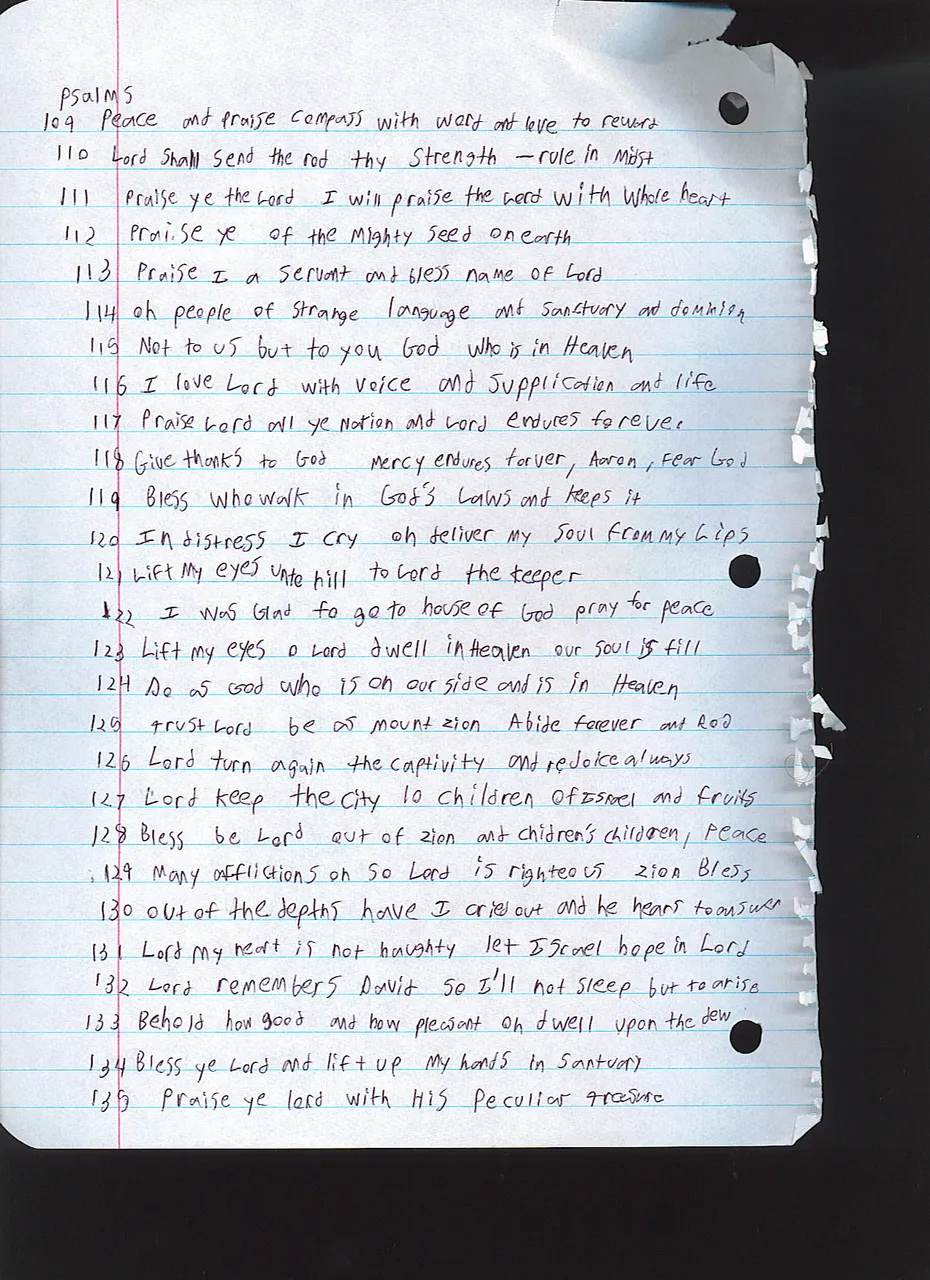 Psalms
109 Peace and praise compass with word and love to reward
110 Lord Shall Send the rod thy Strength — rule in Midst
111 Praise ye the Lord I will praise the Lord with Whole heart
112 Praise ye of the Mighty Seed on earth
113 Praise I a servant and bless name of Lord
114 oh people of Strange language and Sanctuary ad dominion
115 Not to us but to you God who is in Heaven
116 I love Lord with voice and supplication and life
117 Praise Lord all ye Nation and Lord endures forever
118 Give thanks to God Mercy endures forver, Aaron, Fear God
119 Bless who walk in God's Laws and keeps it
120 In distress I cry oh deliver my soul from my Lips
121 Lift My eyes unto hill to Lord the keeper
122 I was Glad to go to house of God pray for peace
123 Lift my eyes o Lord dwell in Heaven our soul is fill
124 Do as God who is on our side and is in Heaven
125 trust Lord be as mount zion Abide forever and Rod
126 Lord turn again the captivity and rejoice always
127 Lord keep the City lo children of Israel and fruits
128 Bless be Lord out of zion and chidren's children, Peace
129 Many afflictions oh so Lord is righteous zion Bless
130 out of the depths have I cried out and he hears to answer
131 Lord my heart is not haughty let Israel hope in Lord
132 Lord remembers David so I'll not sleep but to arise
133 Behold how good and how pleasant oh dwell upon the dew
134 Bless ye Lord and lift up my hands in Santuary
135 Praise ye lord with His Peculiar treasure